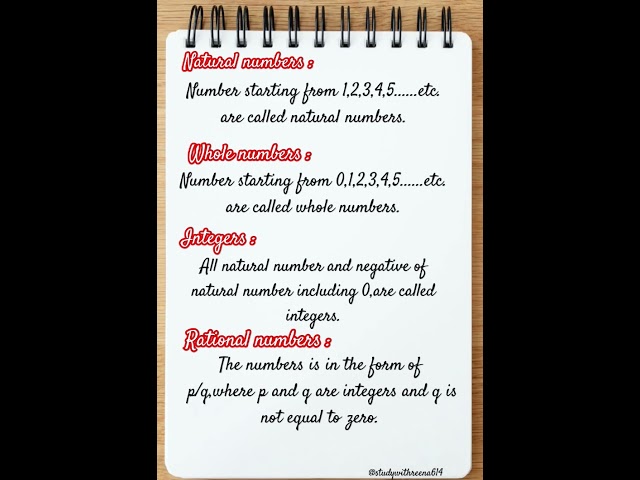 Natural numbers :
Number starting from 1,2,3,4,5......etc.
are called natural numbers.
Whole numbers :
Number starting from 0,1,2,3,4,5......etc.
are called whole numbers.
Integers :
All natural number and negative of
natural number including 0,are called
integers.
Rational numbers :
The numbers is in the form of
p/q,where p and q are integers and q is
not equal to zero.
@studywithreena614